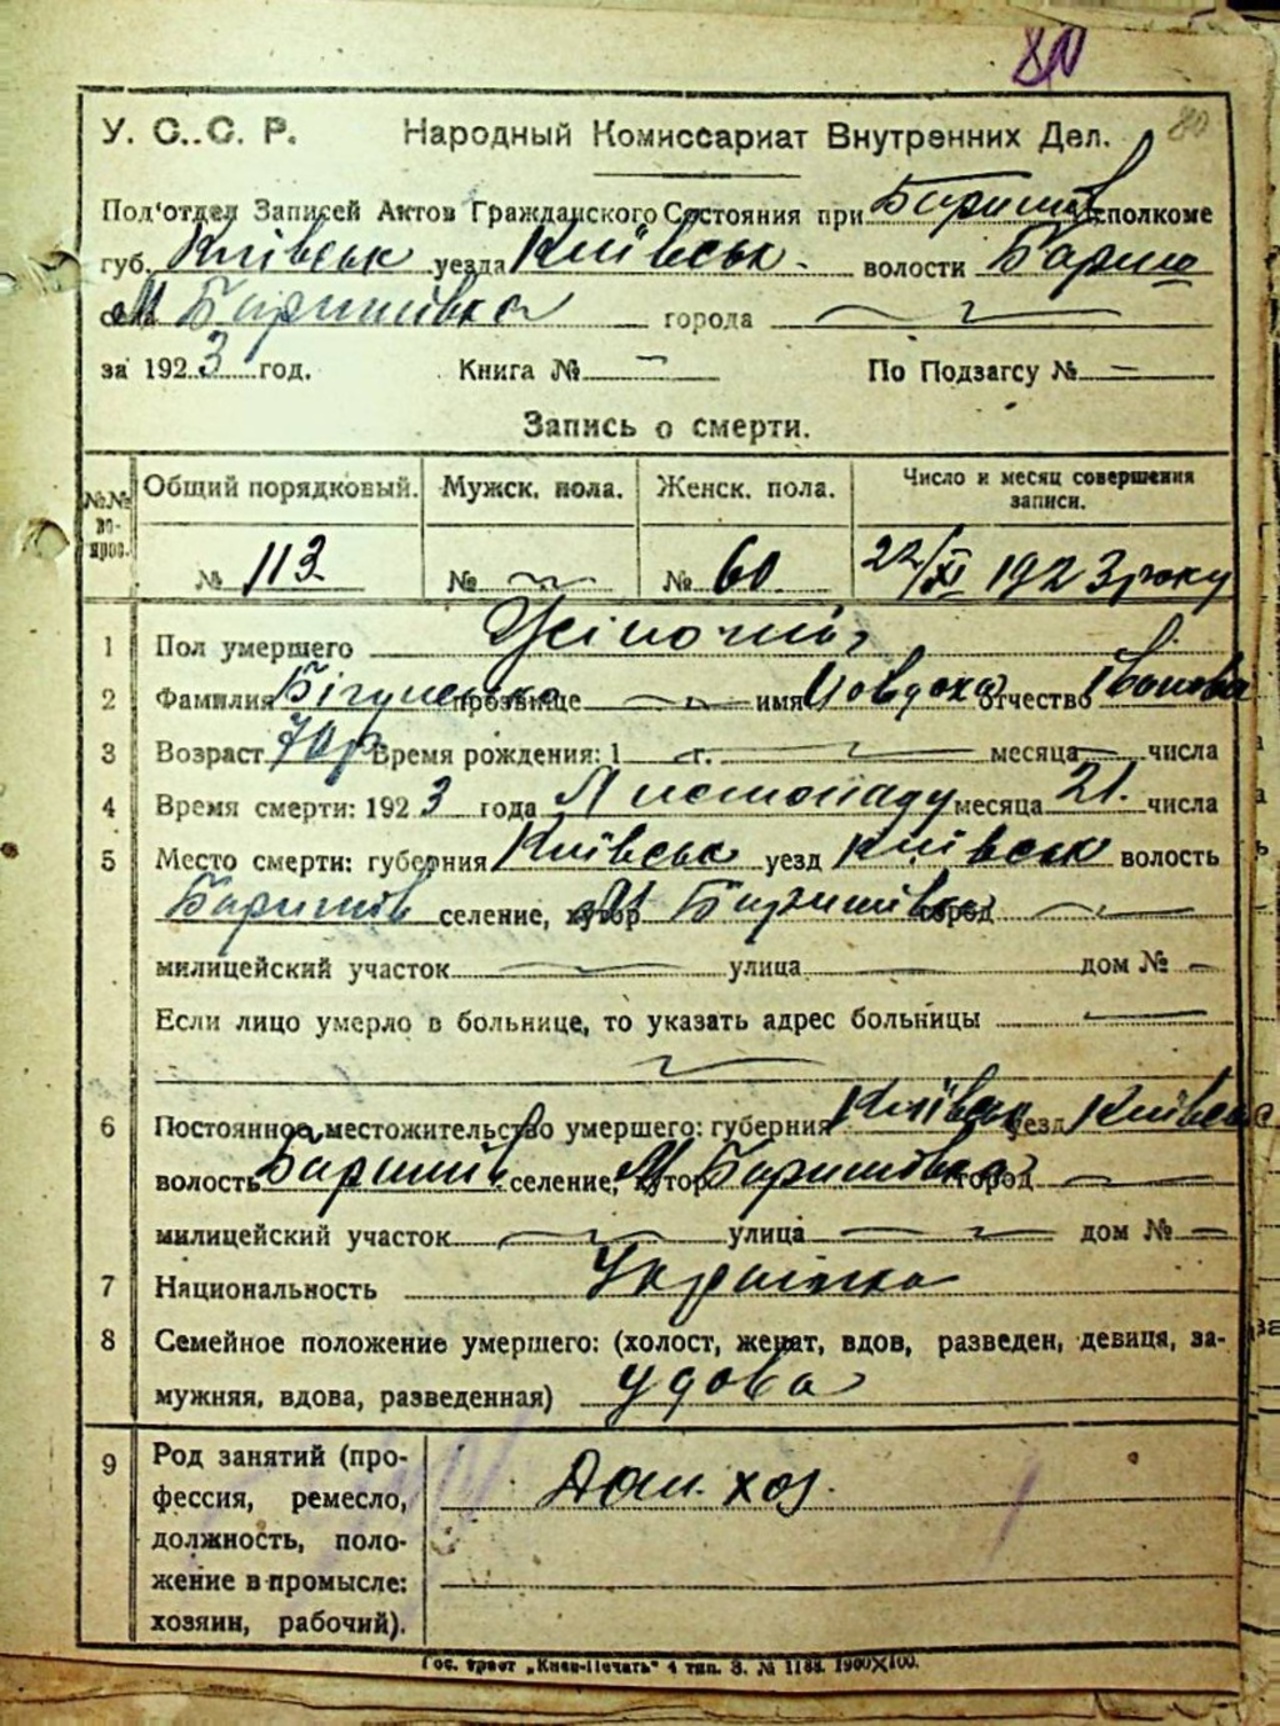 80
80
У. С..С. Р. Народный Комиссариат Внутренних Дел.
Под'отдел Записей Актов Гражданского Состояния при Баришів исполкоме
губ. Київськ уезда Київськ волости Бариш
М Баришівка города
за 1923 год. Книга № — По Подзагсу № —
Запись о смерти.
№№ во-прос. Общий порядковый. Мужск. пола. Женск. пола. Число и месяц совершения записи.
№ 113 № № 60 22/XI 1923 року
1 Пол умершего Жіночий
2 Фамилия прозвище имя Явдоха отчество Іванова
3 Возраст 70 р Время рождения: 1 г. месяца числа
4 Время смерти: 1923 года Листопаду месяца 21. числа
5 Место смерти: губерния Київськ уезд Київськ волость
Баришів селение, хутор М Баришівка город
милицейский участок улица дом № —
Если лицо умерло в больнице, то указать адрес больницы
6 Постоянное местожительство умершего: губерния Київськ уезд Київськ
волость Баришів селение, хутор М Баришівка город
милицейский участок улица дом № —
7 Национальность Українка
8 Семейное положение умершего: (холост, женат, вдов, разведен, девица, за-
мужняя, вдова, разведенная) удова
9 Род занятий (про-
фессия, ремесло,
должность, поло-
жение в промысле:
хозяин, рабочий).
Дом. хоз.
Гос. трест „Киев-Печать" 4 тип. З. № 1188. 1900Х100.